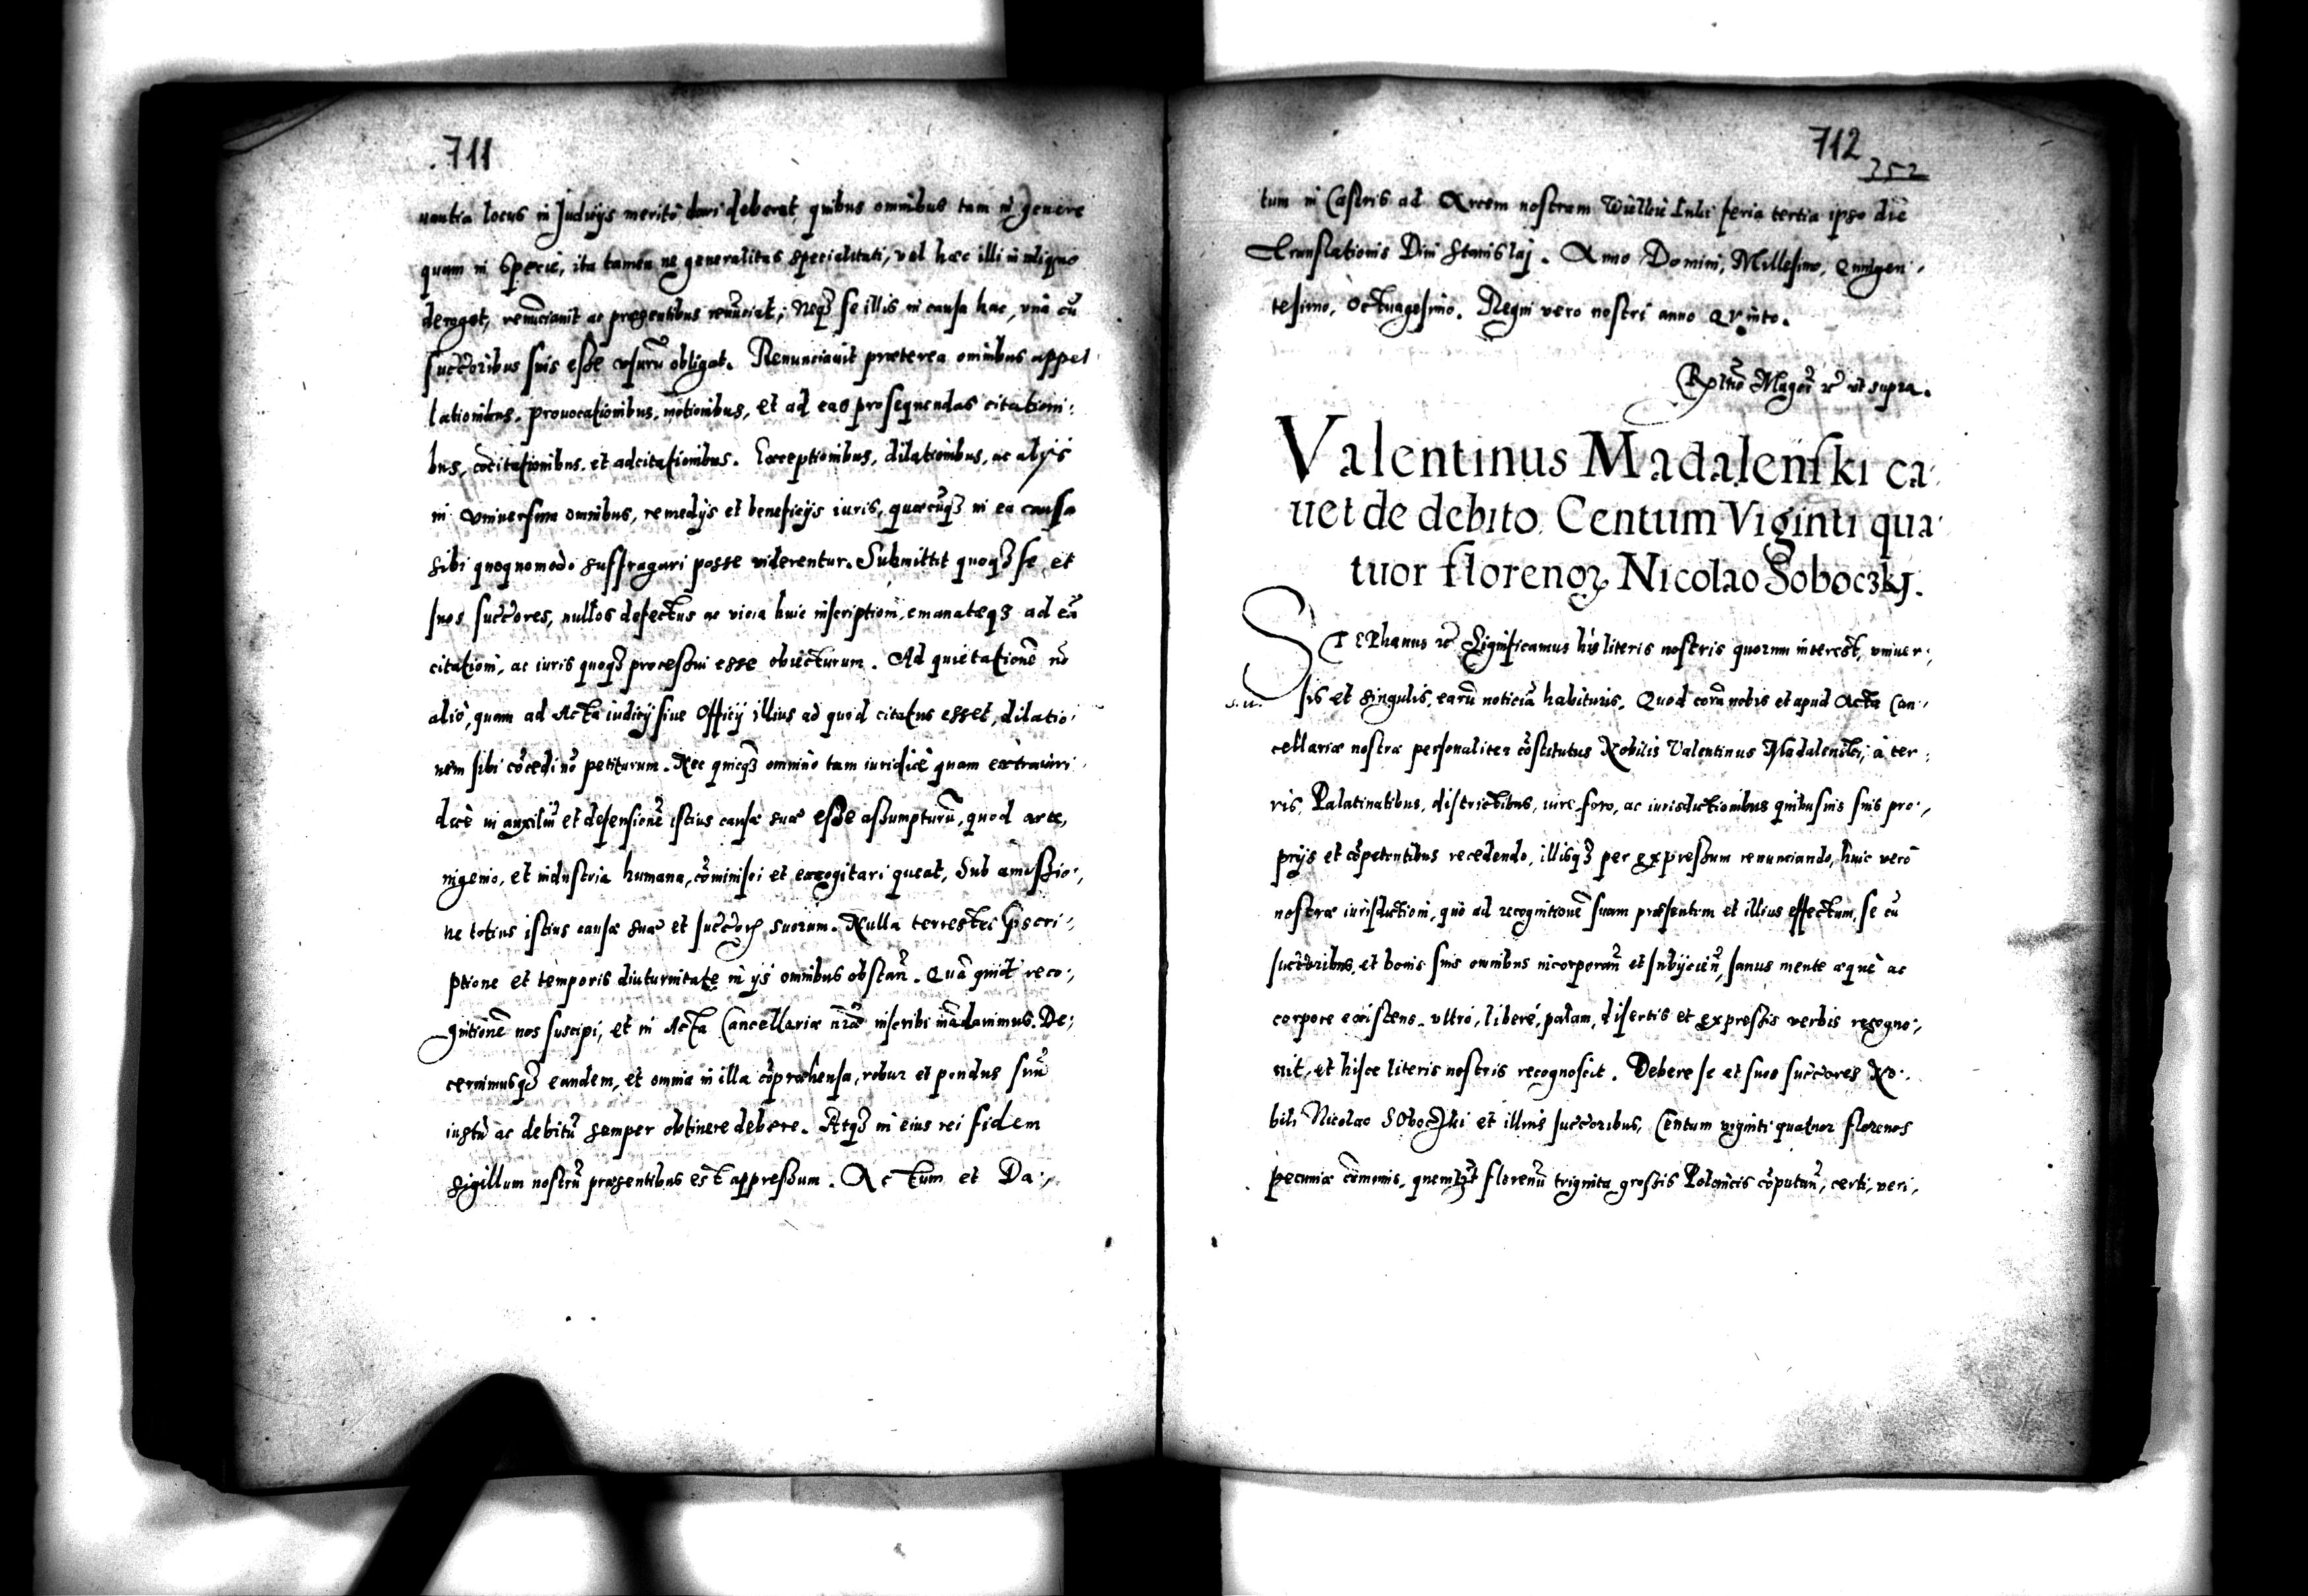 711
uantia locus in Judicijs meritò dari deberet, quibus omnibus tam in genere
quam in specie, ita tamen ne generalitas specialitati, vel hæc illi in aliquo
deroget, renūciauit ac præsentibus renūciat; Neqȝ se illis in causa hac, vnà cū
succ̃oribus suis esse vsurũ obligat. Renunciauit præterea omnibus appel
lationibus, prouocationibus, motionibus, et ad eas prosequendas citationi:
bus, cõcitationibus, et adcitationibus. Exceptionibus, dilationibus, ac alijs
in vniuersum omnibus, remedijs et beneficijs iuris, quæcũqȝ in ea causa
sibi quoquomodo suffragari posse viderentur. Submittit quoqȝ se, et
suos succ̃ores, nullos defectus ac vicia huic inscriptioni, emanatæqȝ ad eã
citationi, ac iuris quoqȝ processui esse obiecturum. Ad quietationẽ nõ
aliò, quam ad Acta iudicij siue Officij illius ad quod citatus esset, dilatio:
nem sibi cõcedi nõ petiturum. Nec quicqȝ omnino tam iuridicè quam extraiuri
dicè in auxiliũ et defensionẽ istius causæ suæ esse assumpturũ, quod arte,
ingenio, et industria humana, cõminisci et excogitari queat, Sub amissio:
ne totius istius causæ suæ et succ̃orꝝ suorum. Nulla terrestri p̃scri:
ptione et temporis diuturnitate in ijs omnibus obstañ. Quã quidẽ reco:
gnitionẽ nos suscipi, et in Acta Cancellariæ n̄ræ inscribi mãdauimus. De:
cernimusqȝ eandem, et omnia in illa cõpræhensa, robur et pondus suũ
iustũ ac debitũ semper obtinere debere. Atqȝ in eius rei fidem
sigillum nostrũ præsentibus est appressum. Actum et Da:
712
252
tum in Castris ad Arcem nostram feria tertia ipso die
Translationis Diui Stanislaj. Anno Domini, Millesimo, Quingen:
tesimo, Octuagesimo. Regni vero nostri anno Quinto.
ut supra.
Valentinus Madalenſki ca:
uet de debito Centum Viginti qua:
tuor florenoꝝ Nicolao Soboczkj.
STEPhanus ꝛc̃ Significamus his literis nostris quorum interest, vniuer:
sis et singulis, earũ noticiã habituris. Quod corã nobis et apud Acta Can:
cellariæ nostræ personaliter cõstitutus Nobilis Valentinus Madalenski, à ter:
ris, Palatinatibus, districtibus, iure, foro, ac iurisdictionibus quibusuis suis pro:
prijs et cõpetentibus recedendo, illisqȝ per expressum renunciando, huic verò
nostræ iurisdictioni, quò ad recognitionẽ suam præsentem et illius effectum, se cũ
succ̃oribus et bonis suis omnibus incorporañ et subijcieñ, sanus mente æquè ac
corpore existens, vltrò, liberè, palam, disertis et expressis verbis recogno:
uit, et hisce literis nostris recognoscit. Debere se et suos succ̃ores No:
bili Nicolao Soboczki et illius succ̃oribus, Centum viginti quatuor florenos
pecuniæ cõmunis, quemlibt florenũ triginta grossis Polonicis cõputañ, certi, veri,